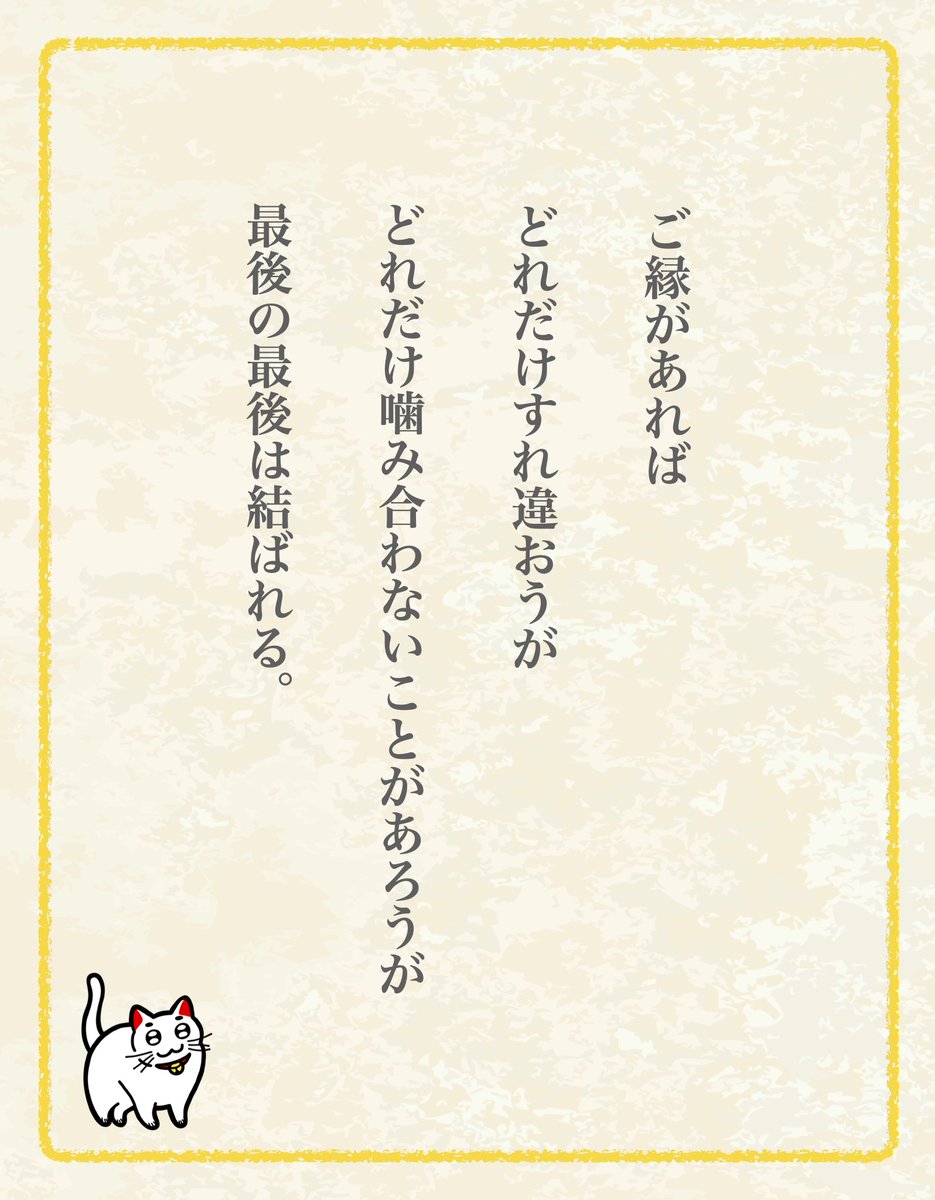 ご縁があれば
どれだけすれ違おうが
どれだけ噛み合わないことがあろうが
最後の最後は結ばれる。